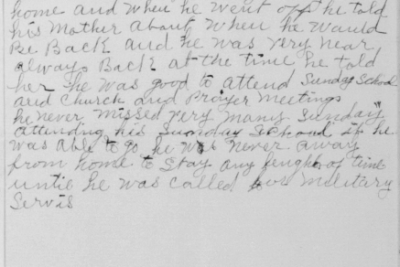 home and when he went off he told
his Mother about when he would
Be Back and he was very near
always Back at the time he told
her he was good to attend Sunday School
and Church and Prayer Meetings
he never missed very many Sunday
attending his Sunday School if he
was able to go he was never away
from home to stay any lenght of time
until he was called for Military
Servis